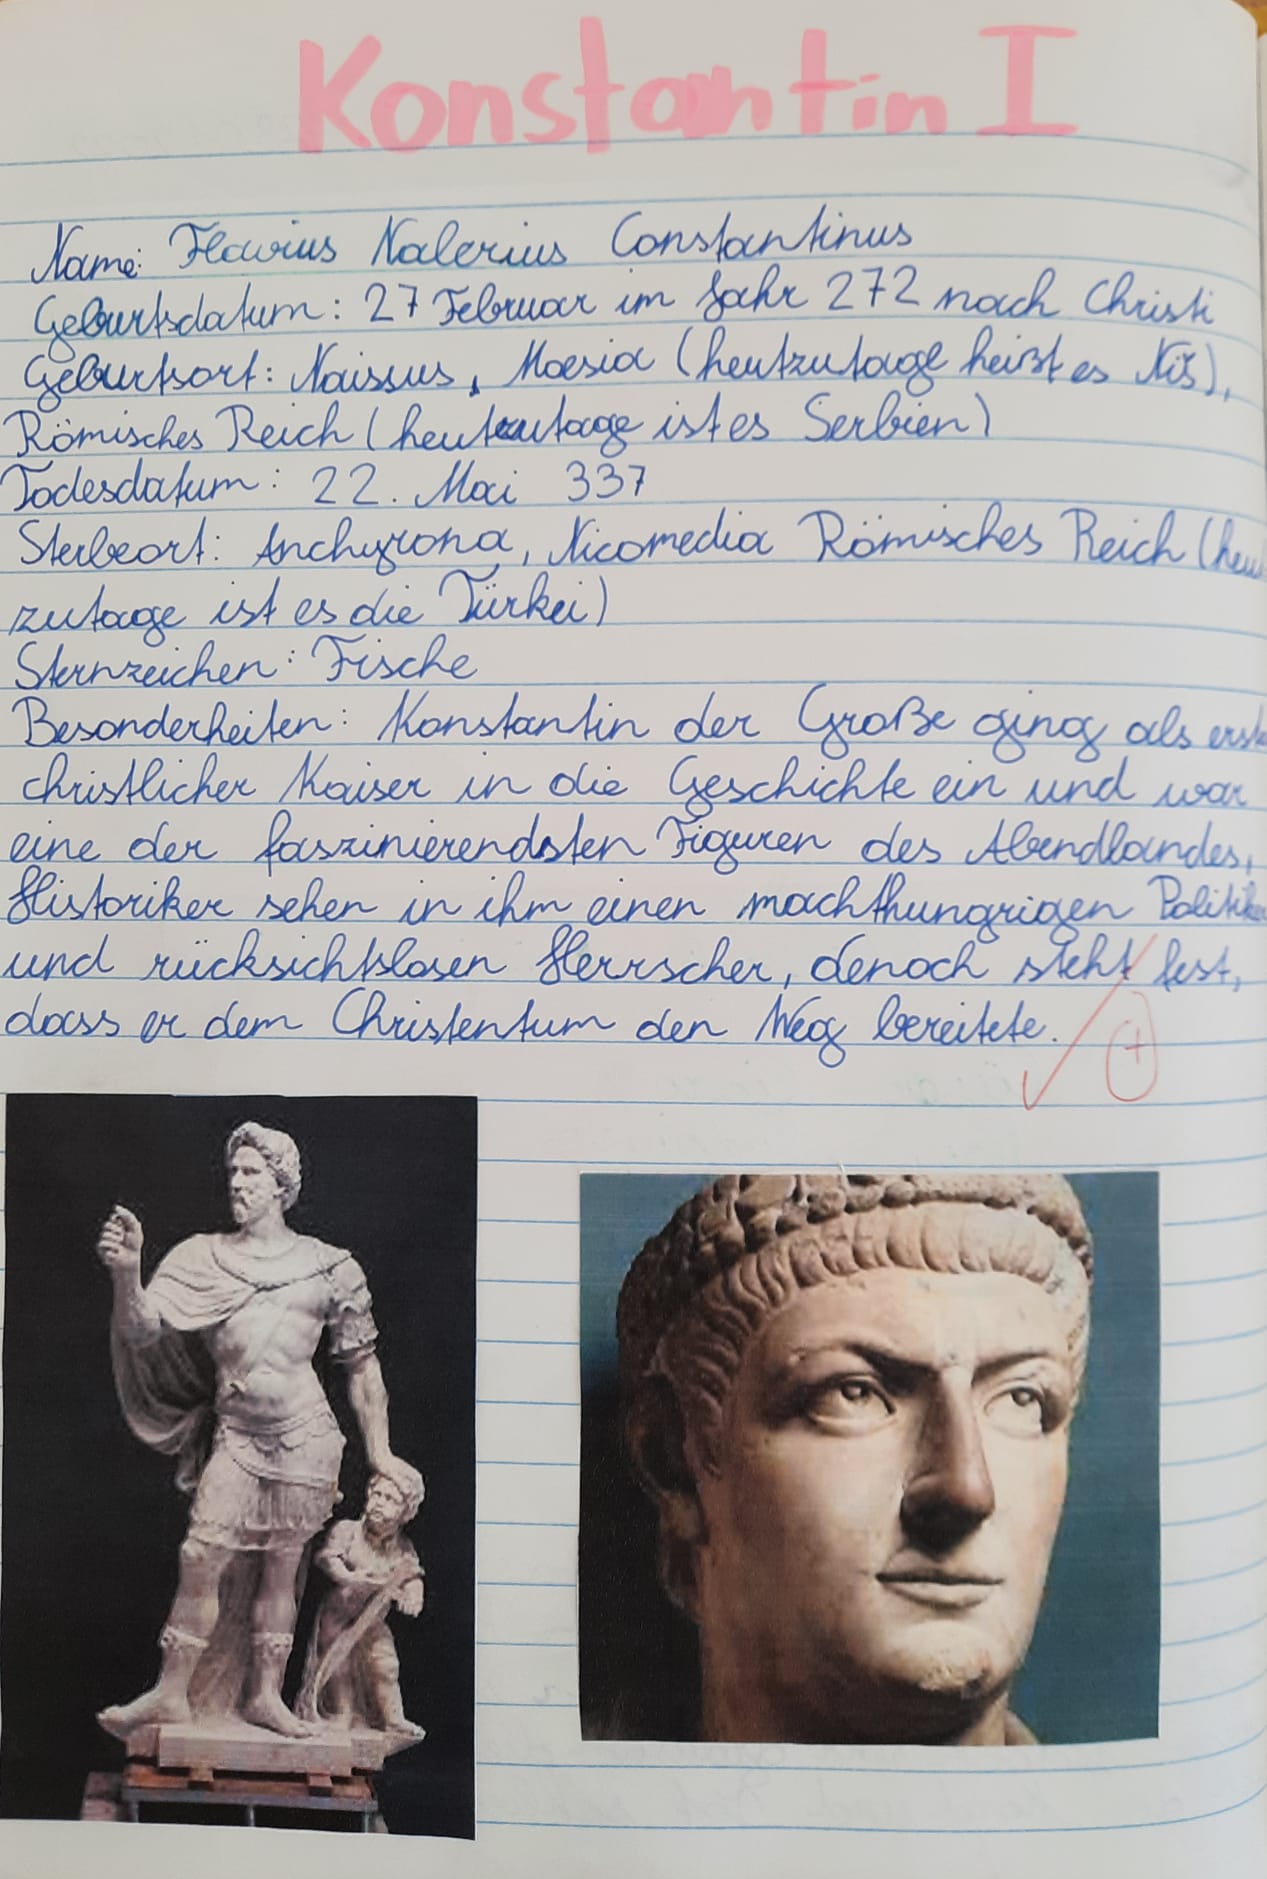 Konstantin I
Name: Flavius Valerius Constantinus
Geburtsdatum: 27 Februar im Jahr 272 nach Christi
Geburtsort: Naissus, Moesia (heutzutage heißt es Niš),
Römisches Reich (heutzutage ist es Serbien)
Todesdatum: 22. Mai 337
Sterbeort: Anchyrona, Nicomedia Römisches Reich (heut
zutage ist es die Türkei)
Sternzeichen: Fische
Besonderheiten: Konstantin der Große ging als erste
christlicher Kaiser in die Geschichte ein und war
eine der faszinierendsten Figuren des Abendlandes,
Historiker sehen in ihm einen machthungrigen Politiker
und rücksichtslosen Herrscher, denoch steht fest,
dass er dem Christentum den Weg bereitete.
+